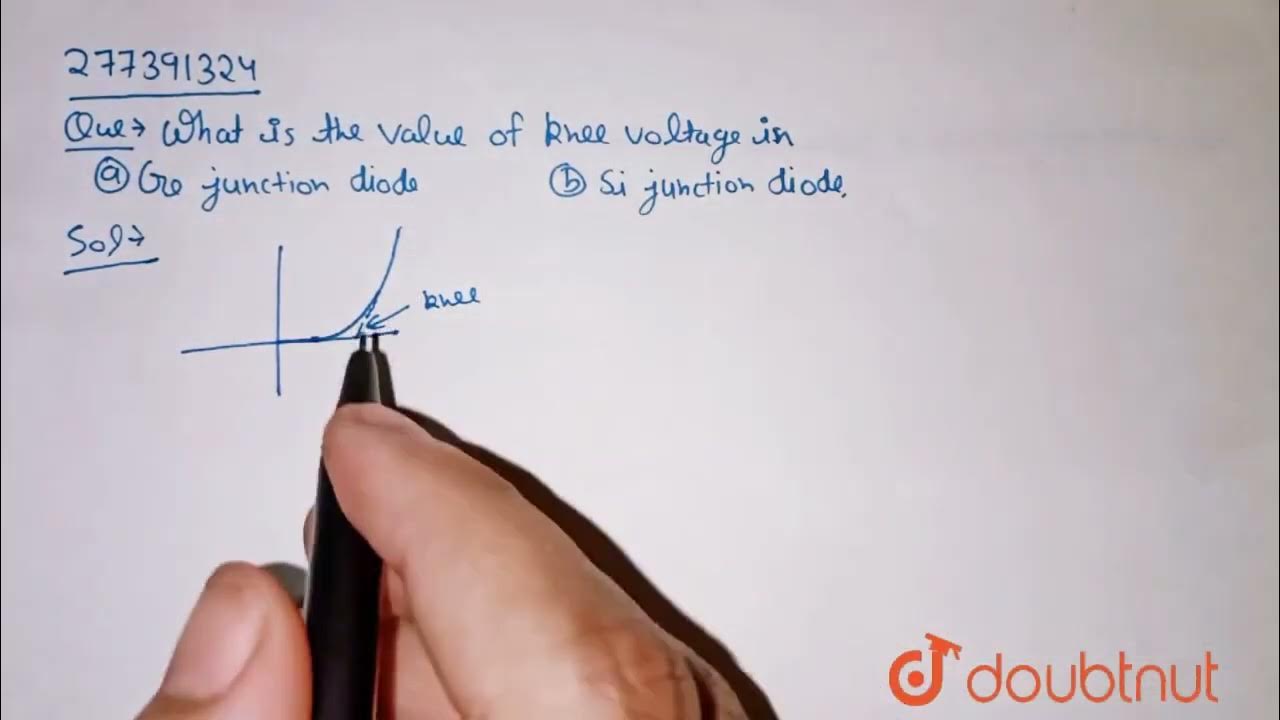 277391324
Que→ What is the value of knee voltage in
ⓐ Ge junction diode ⓑ Si junction diode.
Sol→
knee
doubtnut